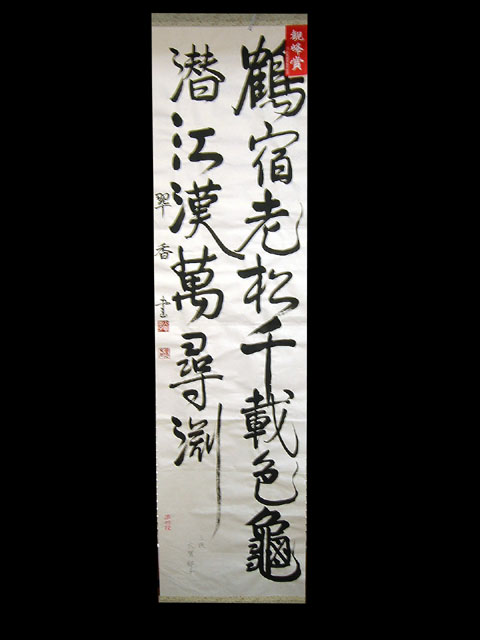 鶴宿老松千載色龜
潜江漢萬尋淵
翠香書
親峰賞